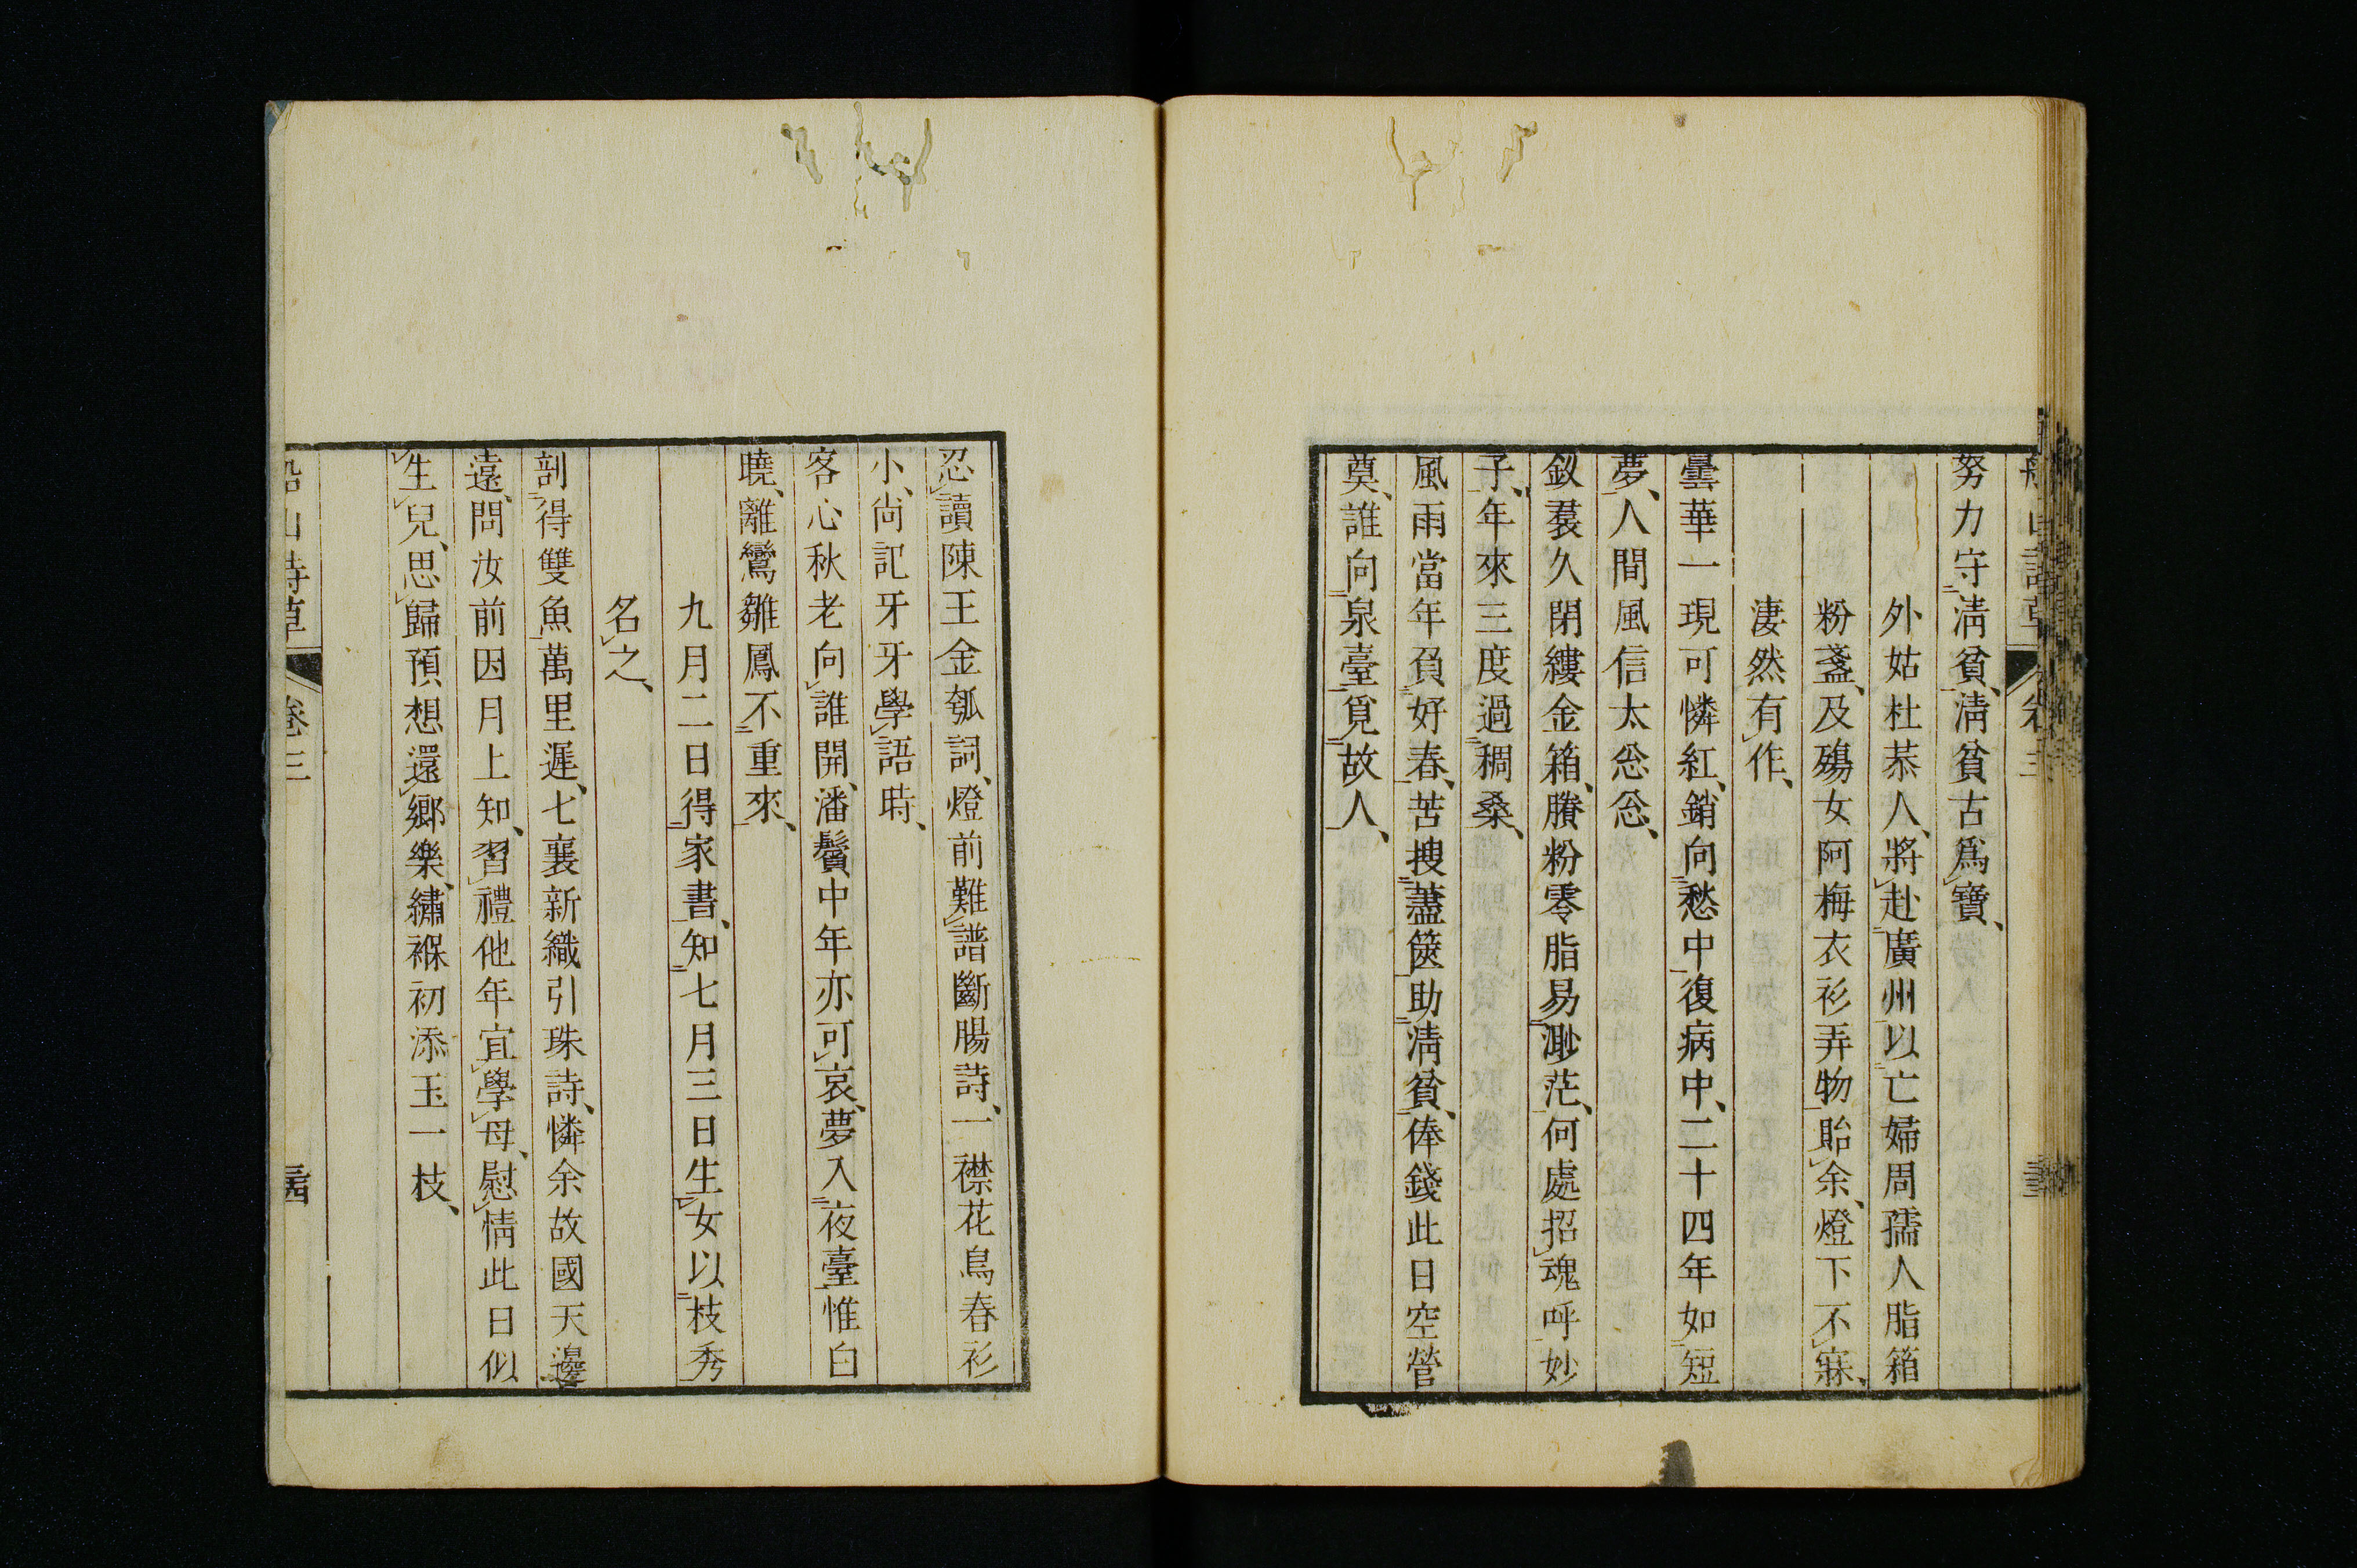 努力守清貧、清貧古爲寶、
外姑杜恭人、將赴廣州以亡婦周孺人脂箱
粉盝、及殤女阿梅衣衫弄物貽余、燈下不寐、
淒然有作、
曇華一現可憐紅、銷向愁中復病中、二十四年如短
夢、人間風信太怱怱、
釵裠久閉縷金箱、賸粉零脂易渺茫、何處招魂呼妙
子、年來三度過稠桑、
風雨當年負好春、苦搜藎篋助清貧、俸錢此日空營
奠、誰向泉臺覓故人、
忍讀陳王金瓠詞、燈前難譜斷腸詩、一襟花鳥春衫
小、尙記牙牙學語時、
客心秋老向誰開、潘鬢中年亦可哀、夢入夜臺惟白
曉、離鸞雛鳳不重來、
九月二日得家書、知七月三日生女以枝秀
名之、
剖得雙魚萬里遲、七襄新織引珠詩、憐余故國天邊
遠、問汝前因月上知、習禮他年宜學母、慰情此日似
生兒、思歸預想還鄉樂、繡褓初添玉一枝、
船山詩草 卷三